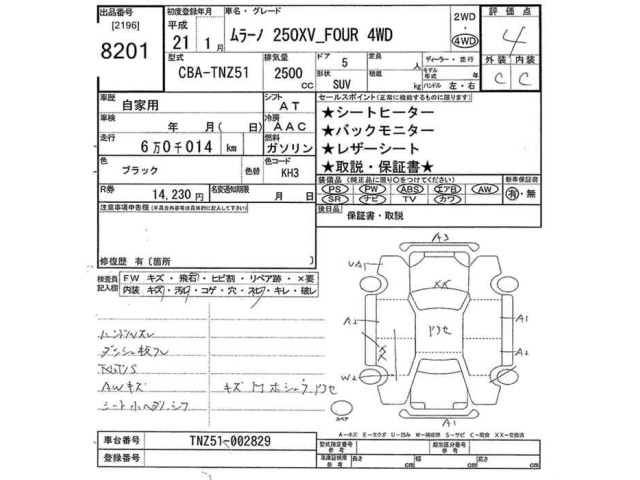 出品番号
[2196]
8201
初度登録年月
平成
21年1月
車名・グレード
ムラーノ 250XV_FOUR 4WD
2WD
・
4WD
評価点
4
型式
CBA-TNZ51
排気量
2500
cc
ドア
5
形状
SUV
定員
人
積載
kg
ディーラー・並行
モデル年式 年
ハンドル 左・右
外装 内装
C C
車歴
自家用
シフト
AT
車検
年 月(日)
冷房
AAC
走行
6万0千014 km
燃料
ガソリン
色
ブラック
色替
色コード
KH3
R券
14,230円
名変通知期限
月 日
セールスポイント(正常に機能するものに限ります)
★シートヒーター
★バックモニター
★レザーシート
★取説・保証書★
装備品(純正品に限り○をつけてください)
PS PW ABS エアB AW
SR ナビ TV カワ
新車保証書
有・無
後日品
保証書・取説
注意事項申告欄(※具合内容等は具体的に記入して下さい)
修復歴 有〔箇所 〕
検査員記入欄
FW キズ・飛石・ヒビ割・リペア跡・×要
内装 キズ・汚れ・コゲ・穴・スレ・キレ・破レ
ハンドルスレ
AWキズ
A3
UA1
XX
A2
A1
W2
A2
X
A1
スペア
A-キズ E-エクボ U-凹み W-補修跡 S-サビ C-腐食 XX-交換済
車台番号
TNZ51-002829
登録番号
型式指定番号
参考
類別区分番号
参考
車庫証明用
参考
長さ cm
幅 cm
高さ cm